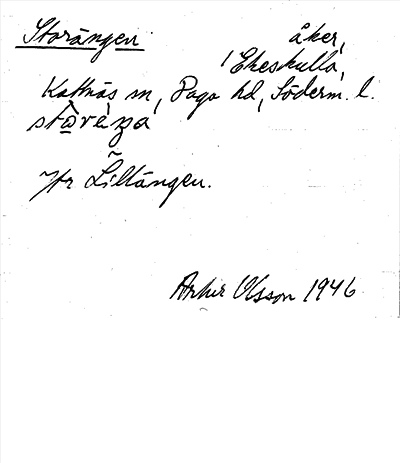 Storängen åker,
Ekeskulla,
Kattnäs sn, Daga hd, Söderm. l.
Jfr Lillängen.
Artur Olsson 1946